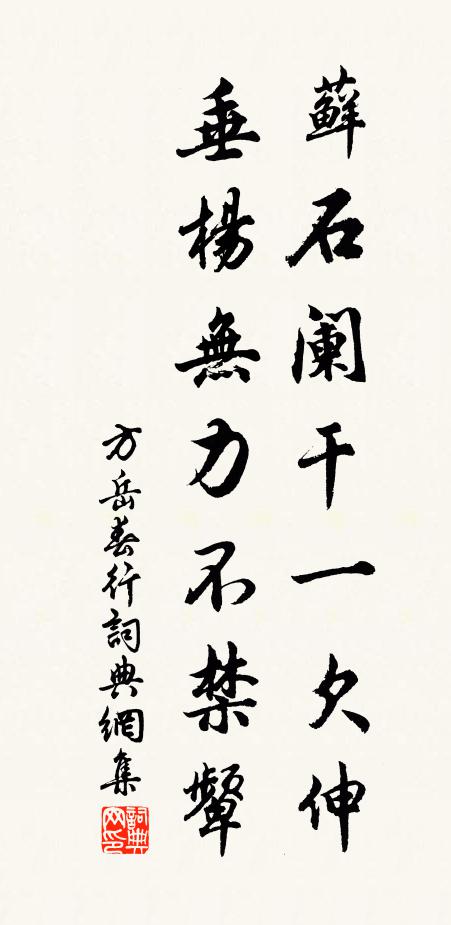 蘚石阑干一欠伸
垂楊無力不禁顰
方岳春行詞典網集
詞典网印